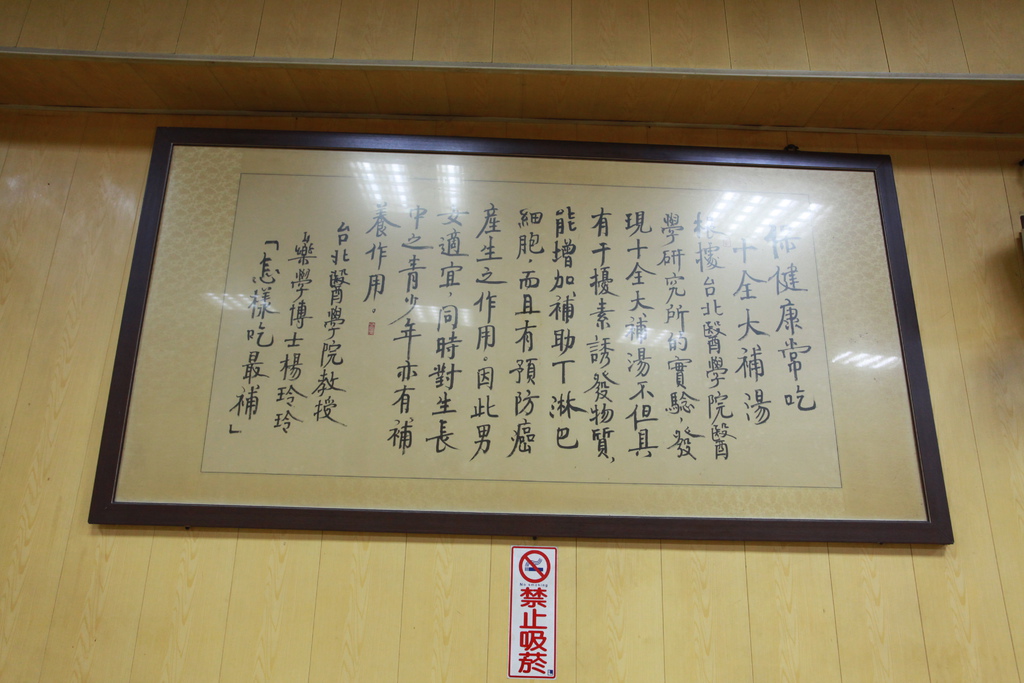 保健康常吃
十全大補湯
根據台北醫學院醫
學研究所的實驗，發
現十全大補湯不但具
有干擾素誘發物質，
能增加補助丅淋巴
細胞，而且有預防癌
產生之作用。因此男
女適宜，同時對生長
中之青少年亦有補
養作用。
台北醫學院教授
藥學博士楊玲玲
「怎樣吃最補」
No smoking
禁止吸菸